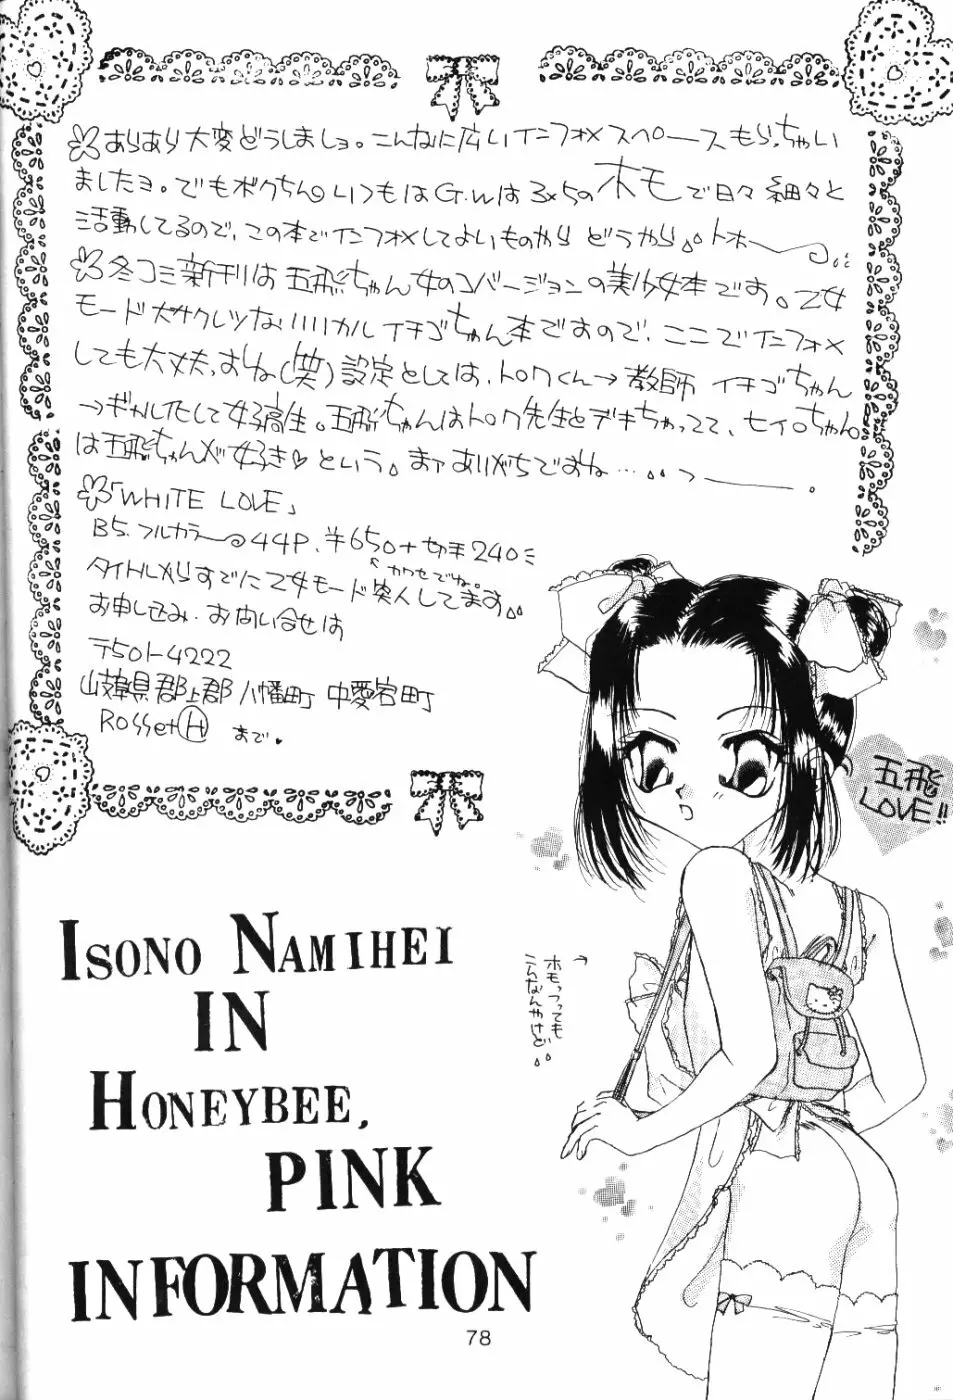 あらあら大変どうしましョ。こんなに広いインフォメスペースもらっちゃい
ましたョ。でもボクちん。いつもはG.Wは3×5のホモで日々細々と
活動してるので、この本でインフォメしてよいものやら どうやら。トホー
冬コミ新刊は五飛ちゃん女のコバージョンの美少女本です。乙女
モード大サクレツなリリカルイチゴちゃん本ですので、ここでインフォメ
しても大丈夫よね(笑)設定としては、トロワくん→教師 イチゴちゃん
→ギャル化して女子高生。五飛ちゃんはトロワ先生とデキちゃってて、セイロちゃん
は五飛ちゃんが好き♡という。まァありがちですね…
「WHITE LOVE」
B5.フルカラー 44P.¥650+切手240
カワセでね。
タイトルからすでに乙女モード突入してます。
お申し込み・お問い合せは
〒501-4222
岐阜県郡上郡八幡町中愛宕町
RossetH まで.
五飛
LOVE!!
ホモっつっても
こんなんやけど
ISONO NAMIHEI
IN
HONEYBEE.
PINK
INFORMATION
78